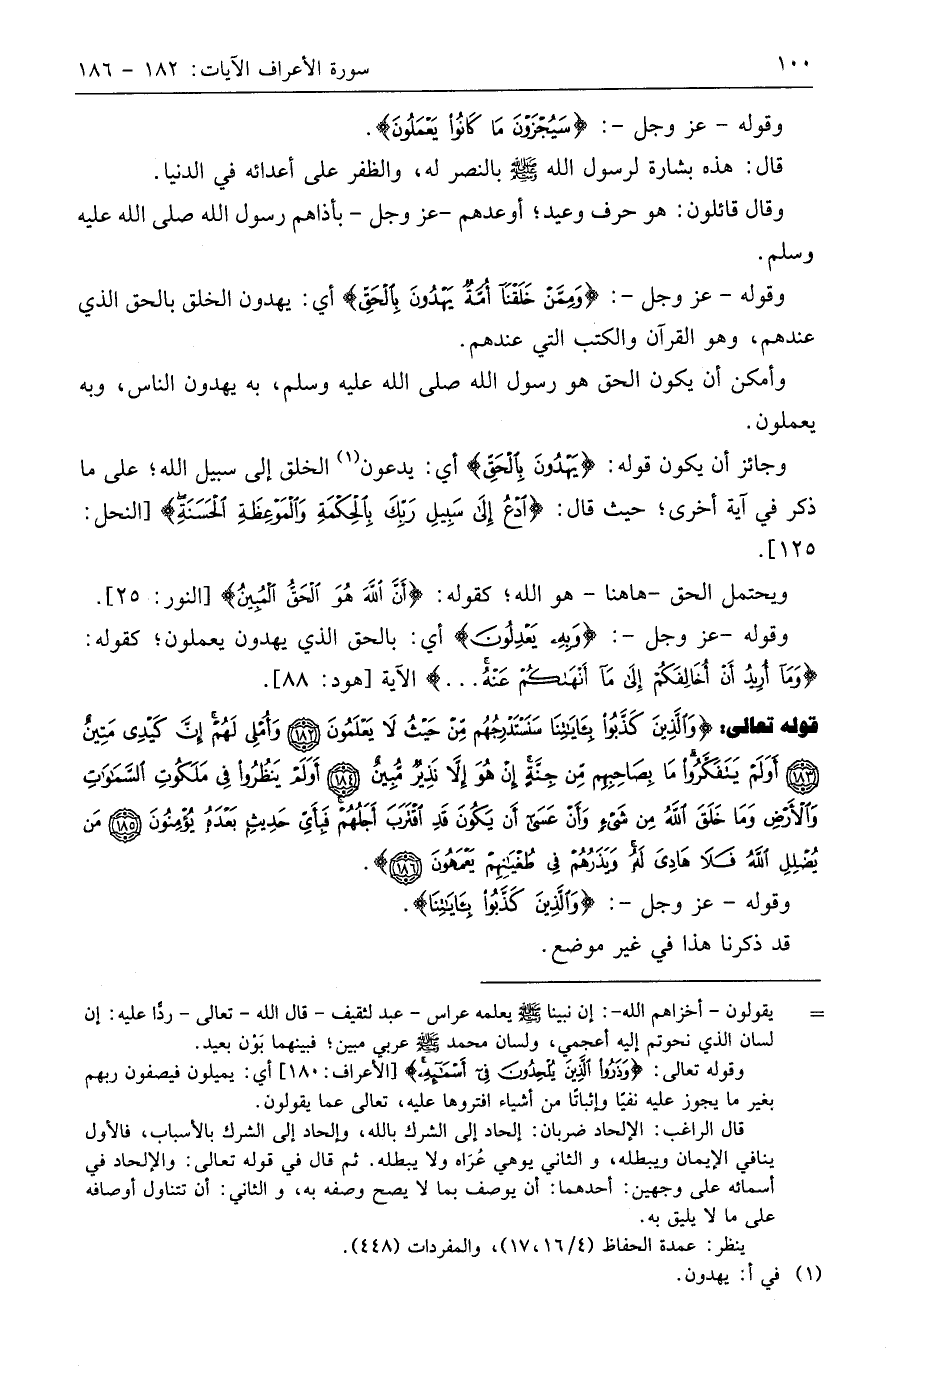 ١٠٠ سورة الأعراف الآيات: ١٨٢ - ١٨٦
وقوله - عز وجل -: ﴿سَيُجْزَوْنَ مَا كَانُوا يَعْمَلُونَ﴾.
قال: هذه بشارة لرسول الله ﷺ بالنصر له، والظفر على أعدائه في الدنيا.
وقال قائلون: هو حرف وعيد؛ أوعدهم -عز وجل - بأذاهم رسول الله صلى الله عليه
وسلم.
وقوله - عز وجل -: ﴿وَمِمَّنْ خَلَقْنَا أُمَّةٌ يَهْدُونَ بِالْحَقِّ﴾ أي: يهدون الخلق بالحق الذي
عندهم، وهو القرآن والكتب التي عندهم.
وأمكن أن يكون الحق هو رسول الله صلى الله عليه وسلم، به يهدون الناس، وبه
يعملون.
وجائز أن يكون قوله: ﴿يَهْدُونَ بِالْحَقِّ﴾ أي: يدعون(١) الخلق إلى سبيل الله؛ على ما
ذكر في آية أخرى؛ حيث قال: ﴿ادْعُ إِلَىٰ سَبِيلِ رَبِّكَ بِالْحِكْمَةِ وَالْمَوْعِظَةِ الْحَسَنَةِ﴾ [النحل:
١٢٥].
ويحتمل الحق -هاهنا - هو الله؛ كقوله: ﴿أَنَّ اللَّهَ هُوَ الْحَقُّ الْمُبِينُ﴾ [النور: ٢٥].
وقوله -عز وجل -: ﴿وَبِهِ يَعْدِلُونَ﴾ أي: بالحق الذي يهدون يعملون؛ كقوله:
﴿وَمَا أُرِيدُ أَنْ أُخَالِفَكُمْ إِلَىٰ مَا أَنْهَاكُمْ عَنْهُ...﴾ الآية [هود: ٨٨].
قوله تعالى: ﴿وَالَّذِينَ كَذَّبُوا بِآيَاتِنَا سَنَسْتَدْرِجُهُم مِّنْ حَيْثُ لَا يَعْلَمُونَ ١٨٢ وَأُمْلِي لَهُمْ إِنَّ كَيْدِي مَتِينٌ
١٨٣ أَوَلَمْ يَتَفَكَّرُوا مَا بِصَاحِبِهِم مِّن جِنَّةٍ إِنْ هُوَ إِلَّا نَذِيرٌ مُّبِينٌ ١٨٤ أَوَلَمْ يَنظُرُوا فِي مَلَكُوتِ السَّمَاوَاتِ
وَالْأَرْضِ وَمَا خَلَقَ اللَّهُ مِن شَيْءٍ وَأَنْ عَسَىٰ أَن يَكُونَ قَدِ اقْتَرَبَ أَجَلُهُمْ فَبِأَيِّ حَدِيثٍ بَعْدَهُ يُؤْمِنُونَ ١٨٥ مَن
يُضْلِلِ اللَّهُ فَلَا هَادِيَ لَهُ وَيَذَرُهُمْ فِي طُغْيَانِهِمْ يَعْمَهُونَ ١٨٦﴾.
وقوله - عز وجل -: ﴿وَالَّذِينَ كَذَّبُوا بِآيَاتِنَا﴾.
قد ذكرنا هذا في غير موضع.
= يقولون - أخزاهم الله-: إن نبينا ﷺ يعلمه عراس - عبد لثقيف - قال الله - تعالى - ردًّا عليه: إن
لسان الذي نحوتم إليه أعجمي، ولسان محمد ﷺ عربي مبين؛ فبينهما بَوْن بعيد.
وقوله تعالى: ﴿وَذَرُوا الَّذِينَ يُلْحِدُونَ فِي أَسْمَائِهِ﴾ [الأعراف: ١٨٠] أي: يميلون فيصفون ربهم
بغير ما يجوز عليه نفيًا وإثباتًا من أشياء افتروها عليه، تعالى عما يقولون.
قال الراغب: الإلحاد ضربان: إلحاد إلى الشرك بالله، وإلحاد إلى الشرك بالأسباب، فالأول
ينافي الإيمان ويبطله، و الثاني يوهي عُرَاه ولا يبطله. ثم قال في قوله تعالى: والإلحاد في
أسمائه على وجهين: أحدهما: أن يوصف بما لا يصح وصفه به، و الثاني: أن تتناول أوصافه
على ما لا يليق به.
ينظر: عمدة الحفاظ (٤/ ١٦، ١٧)، والمفردات (٤٤٨).
(١) في أ: يهدون.